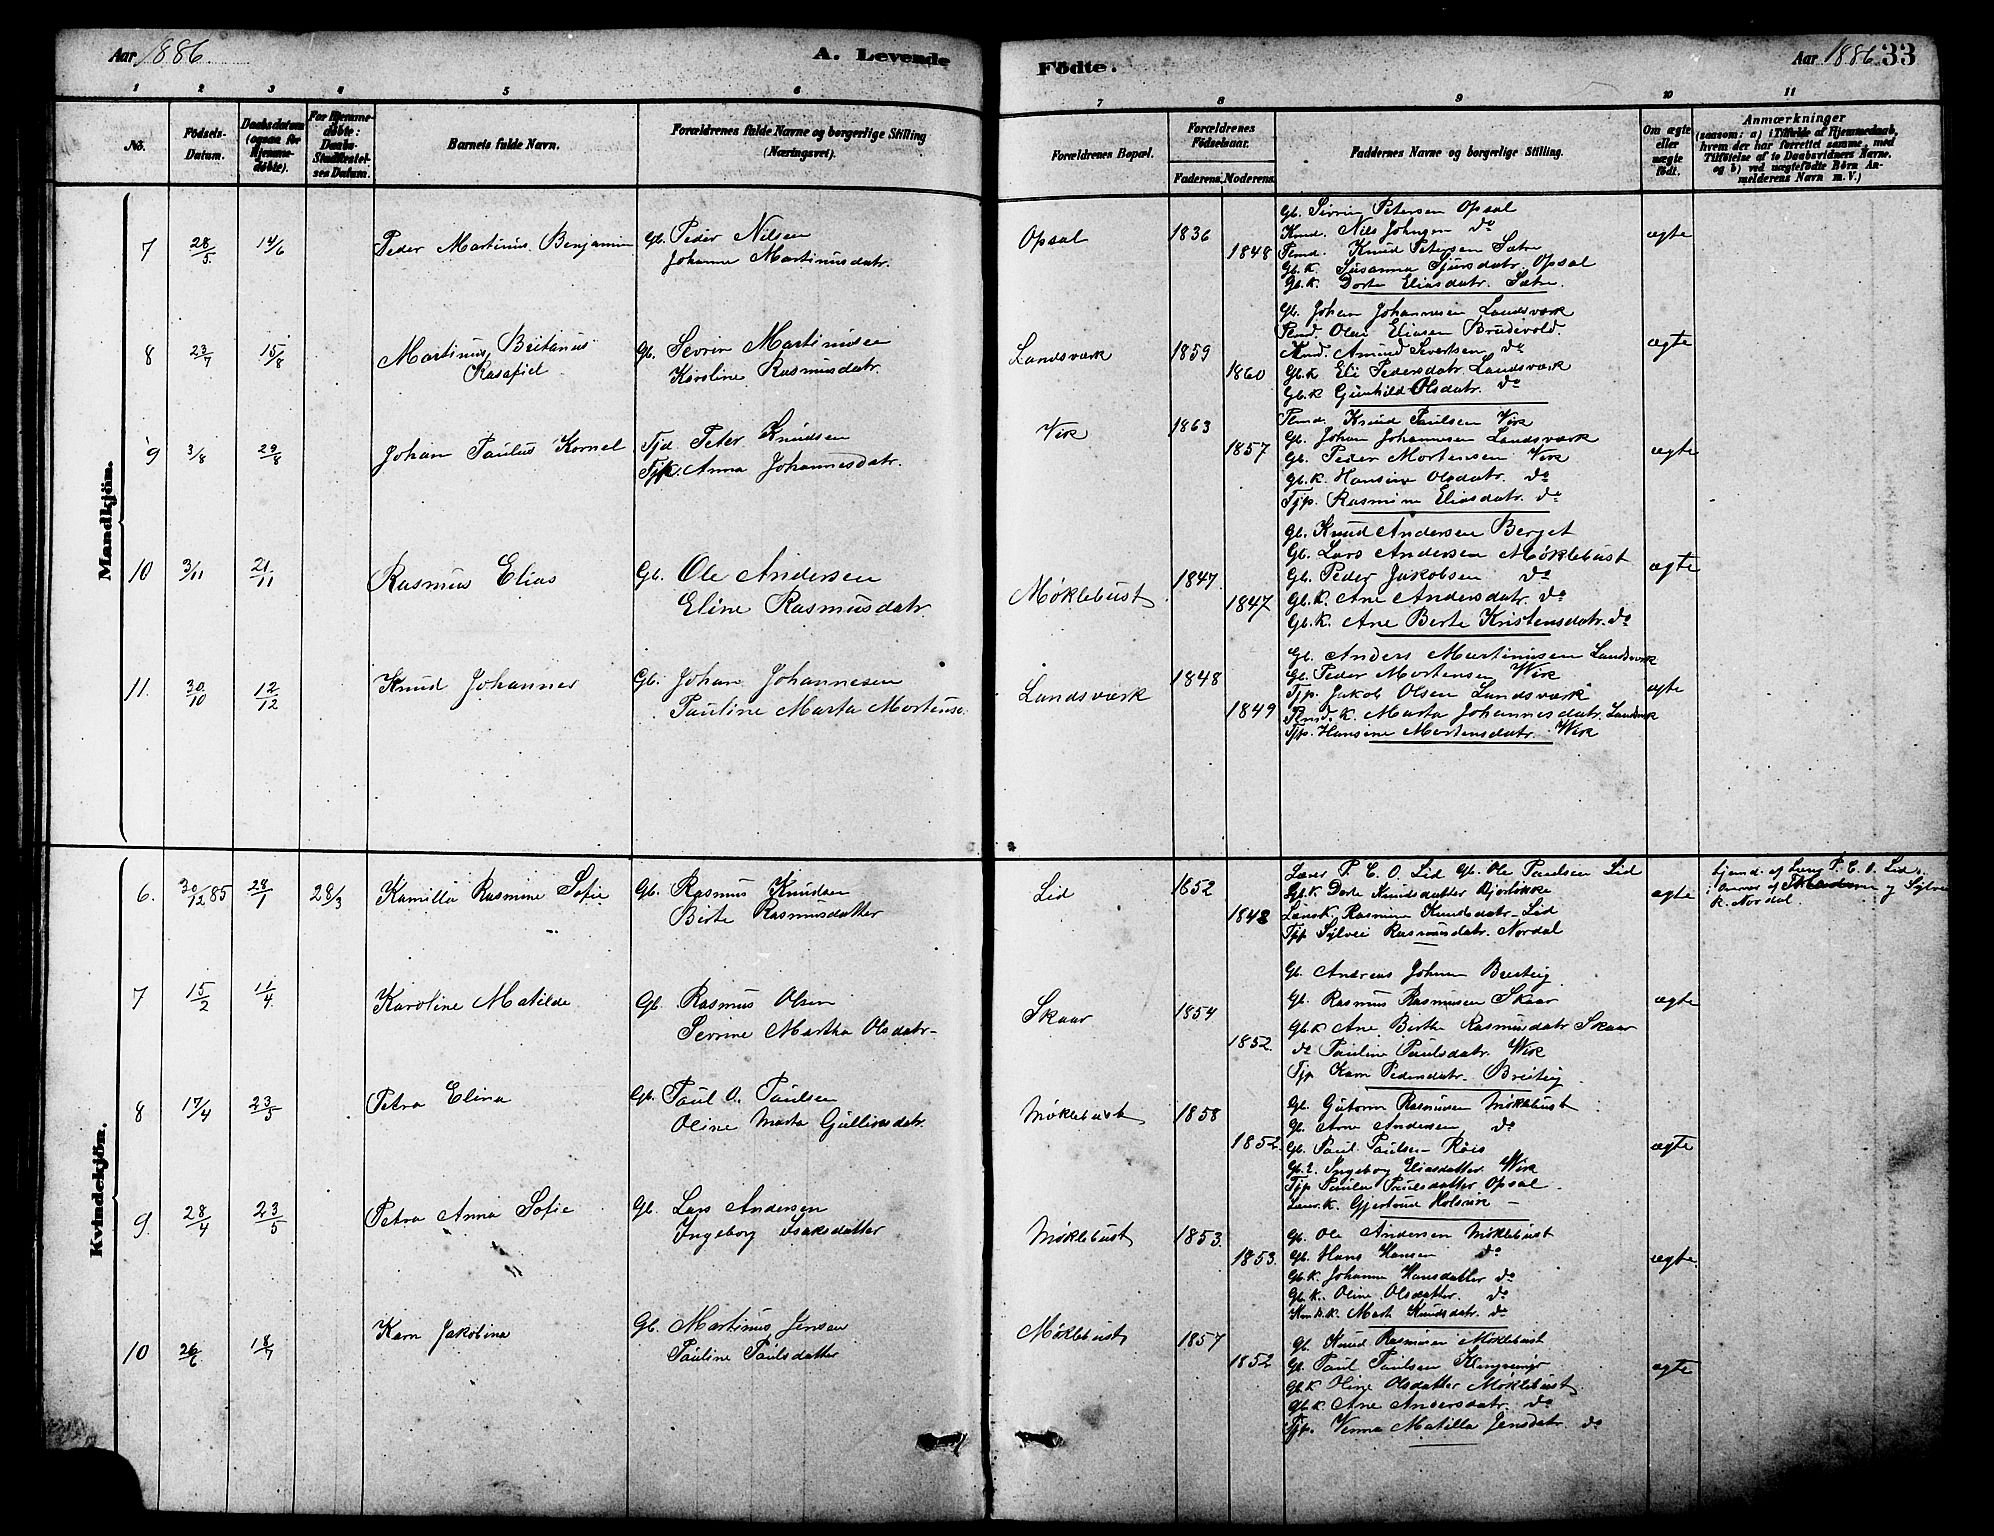 Aar 1886
A. Levende
Födte.
Aar 1886
33
1 2 3 4 5 6 7 8 9 10 11
No.
Födsels-Datum.
Daabsdatum (ogsaa for Hjemme-döbte).
For Hjemme-döbte: Daabs-Stadfæstel-ses Datum.
Barnets fulde Navn.
Forældrenes fulde Navne og borgerlige Stilling
(Næringsvei).
Forældrenes Bopæl.
Forældrenes Födselsaar.
Faderens. Moderens.
Faddernes Navne og borgerlige Stilling.
Om ægte eller uægte födt.
Anmærkninger
(saasom: a) i Tilfælde af Hjemmedaab,
hvem der har forrettet samme, med
Tilföielse af to Daabsvidners Navne.
og b) ved uægtefödte Börn An-
melderens Navn m. V.)
Mandkjön.
7 28/5 14/6 Peder Martinus Benjamin
Gb. Peder Nilsen
Johanne Martinusdatr.
Opsal 1836 1848 ægte
Gb. Sivrin Petersen Opsal
Kmd. Nils Johnsen do
Fmd. Knud Petersen Sætre
Gb.k. Susanna Sjursdatr. Opsal
Gb.k. Dorte Eliasdatr. Sætre
8 23/7 15/8 Martinus Britanus
Rasafiel
Gb. Sevrin Martinusen
Karoline Rasmusdatr.
Landsværk 1859 1860 ægte
Gb. Johan Johannesen Landsværk
Fmd. Olai Eliasen Brudevold
Kmd. Amund Sivertsen do
Gb.k Eli Pedersdatr Landsværk
Gb.k Gunhild Olsdatr. do
9 3/8 29/8 Johan Paulus Kornel
Tjd Peter Knudsen
Tjp. Anna Johannesdatr.
Virk 1863 1857 ægte
Fmd. Knud Paulsen Virk
Gb. Johan Johannesen Landsværk
Gb. Peder Mortensen Virk
Gb.k. Hansine Olsdatr. do
Tjp. Rasmine Eliasdatr. do
10 3/11 21/11 Rasmus Elias
Gb. Ole Andersen
Eline Rasmusdatr.
Møklebust 1847. 1847 ægte
Gb. Knud Andersen Berget
Gb. Lars Andersen Møklebust
Gb. Peder Jakobsen do
Gb.k. Ane Andersdatr. do
Gb.k. Ane Berte Kristensdatr. do
11. 30/10 12/12 Knud Johannes
Gb. Johan Johannesen
Pauline Marta Mortensd.
Landsværk 1848 1849 ægte
Gb. Anders Martinusen Landsværk
Gb. Peder Mortensen Wirk
Tjp. Jakob Olsen Landsværk
Fmd. k. Marta Johannesdatr. Landsvk
Tjp. Hansine Mortensdatr. Wirk
Kvindekjön.
6. 30/12 85 28/1 28/3 Kamilla Rasmine Sofie
Gb. Rasmus Knudsen
Berte Rasmusdatter
Lid 1852 1848 ægte
Lærer P. E. O. Lid Gb. Ole Paulsen Lid
Gb.k Dorte Knudsdatter
Lærer.k. Rasmine Knudsdatr. Lid
Tjp Sylvei Rasmusdatr. Nordal
Hjemd. af Lærer P. E. O. Lid
k. Nordal.
7 15/2 11/4. Karoline Matilde
Gb. Rasmus Olsen
Sevrine Martha Olsdatr-
Skaar 1854 1852. ægte
Gb. Andreas Johnsen Breiteig
Gb. Rasmus Rasmusen Skaar
Gb.k Ane Birthe Rasmusdatr Skaar
do Pauline Paulsdatr. Wirk
Tjp Karn Pedersdatr. Breiteig
8 17/4 23/5 Petra Elina
Gb. Paul O. Paulsen
Oline Marta Gulliksdatr.
Møklebust 1858 1852. ægte
Gb. Gutorm Rasmusen Møklebust
Gb. Arne Andersen do
Gb. Paul Paulsen Røis
Gb.k. Ingeborg Eliasdatter Wirk
Tjp Paula Paulsdatter Opsal
Lærer.k. Gjertrud Holsvik
9 28/4 23/5 Petra Anna Sofie
Gb. Lars Andersen
Ingeborg Isaksdatter
Møklebust 1853. 1853. ægte.
Gb. Ole Andersen Møklebust
Gb. Hans Hansen do
Gb.k. Johanne Hansdatter do
Gb.k. Oline Olsdatter. do
Kmd.k. Marte Knudsdatr. do
10 26/6 18/7 Karn Jakobina
Gb. Martinus Jensen
Pauline Paulsdatter
Møklebust 1857 1852 ægte
Gb. Knud Rasmusen Møklebust
Gb. Paul Paulsen
Gb.k Oline Olsdatter Møklebust
Gb.k. Ane Andersdatr. do
Tjp. Verma Matilla Jensdatr. do